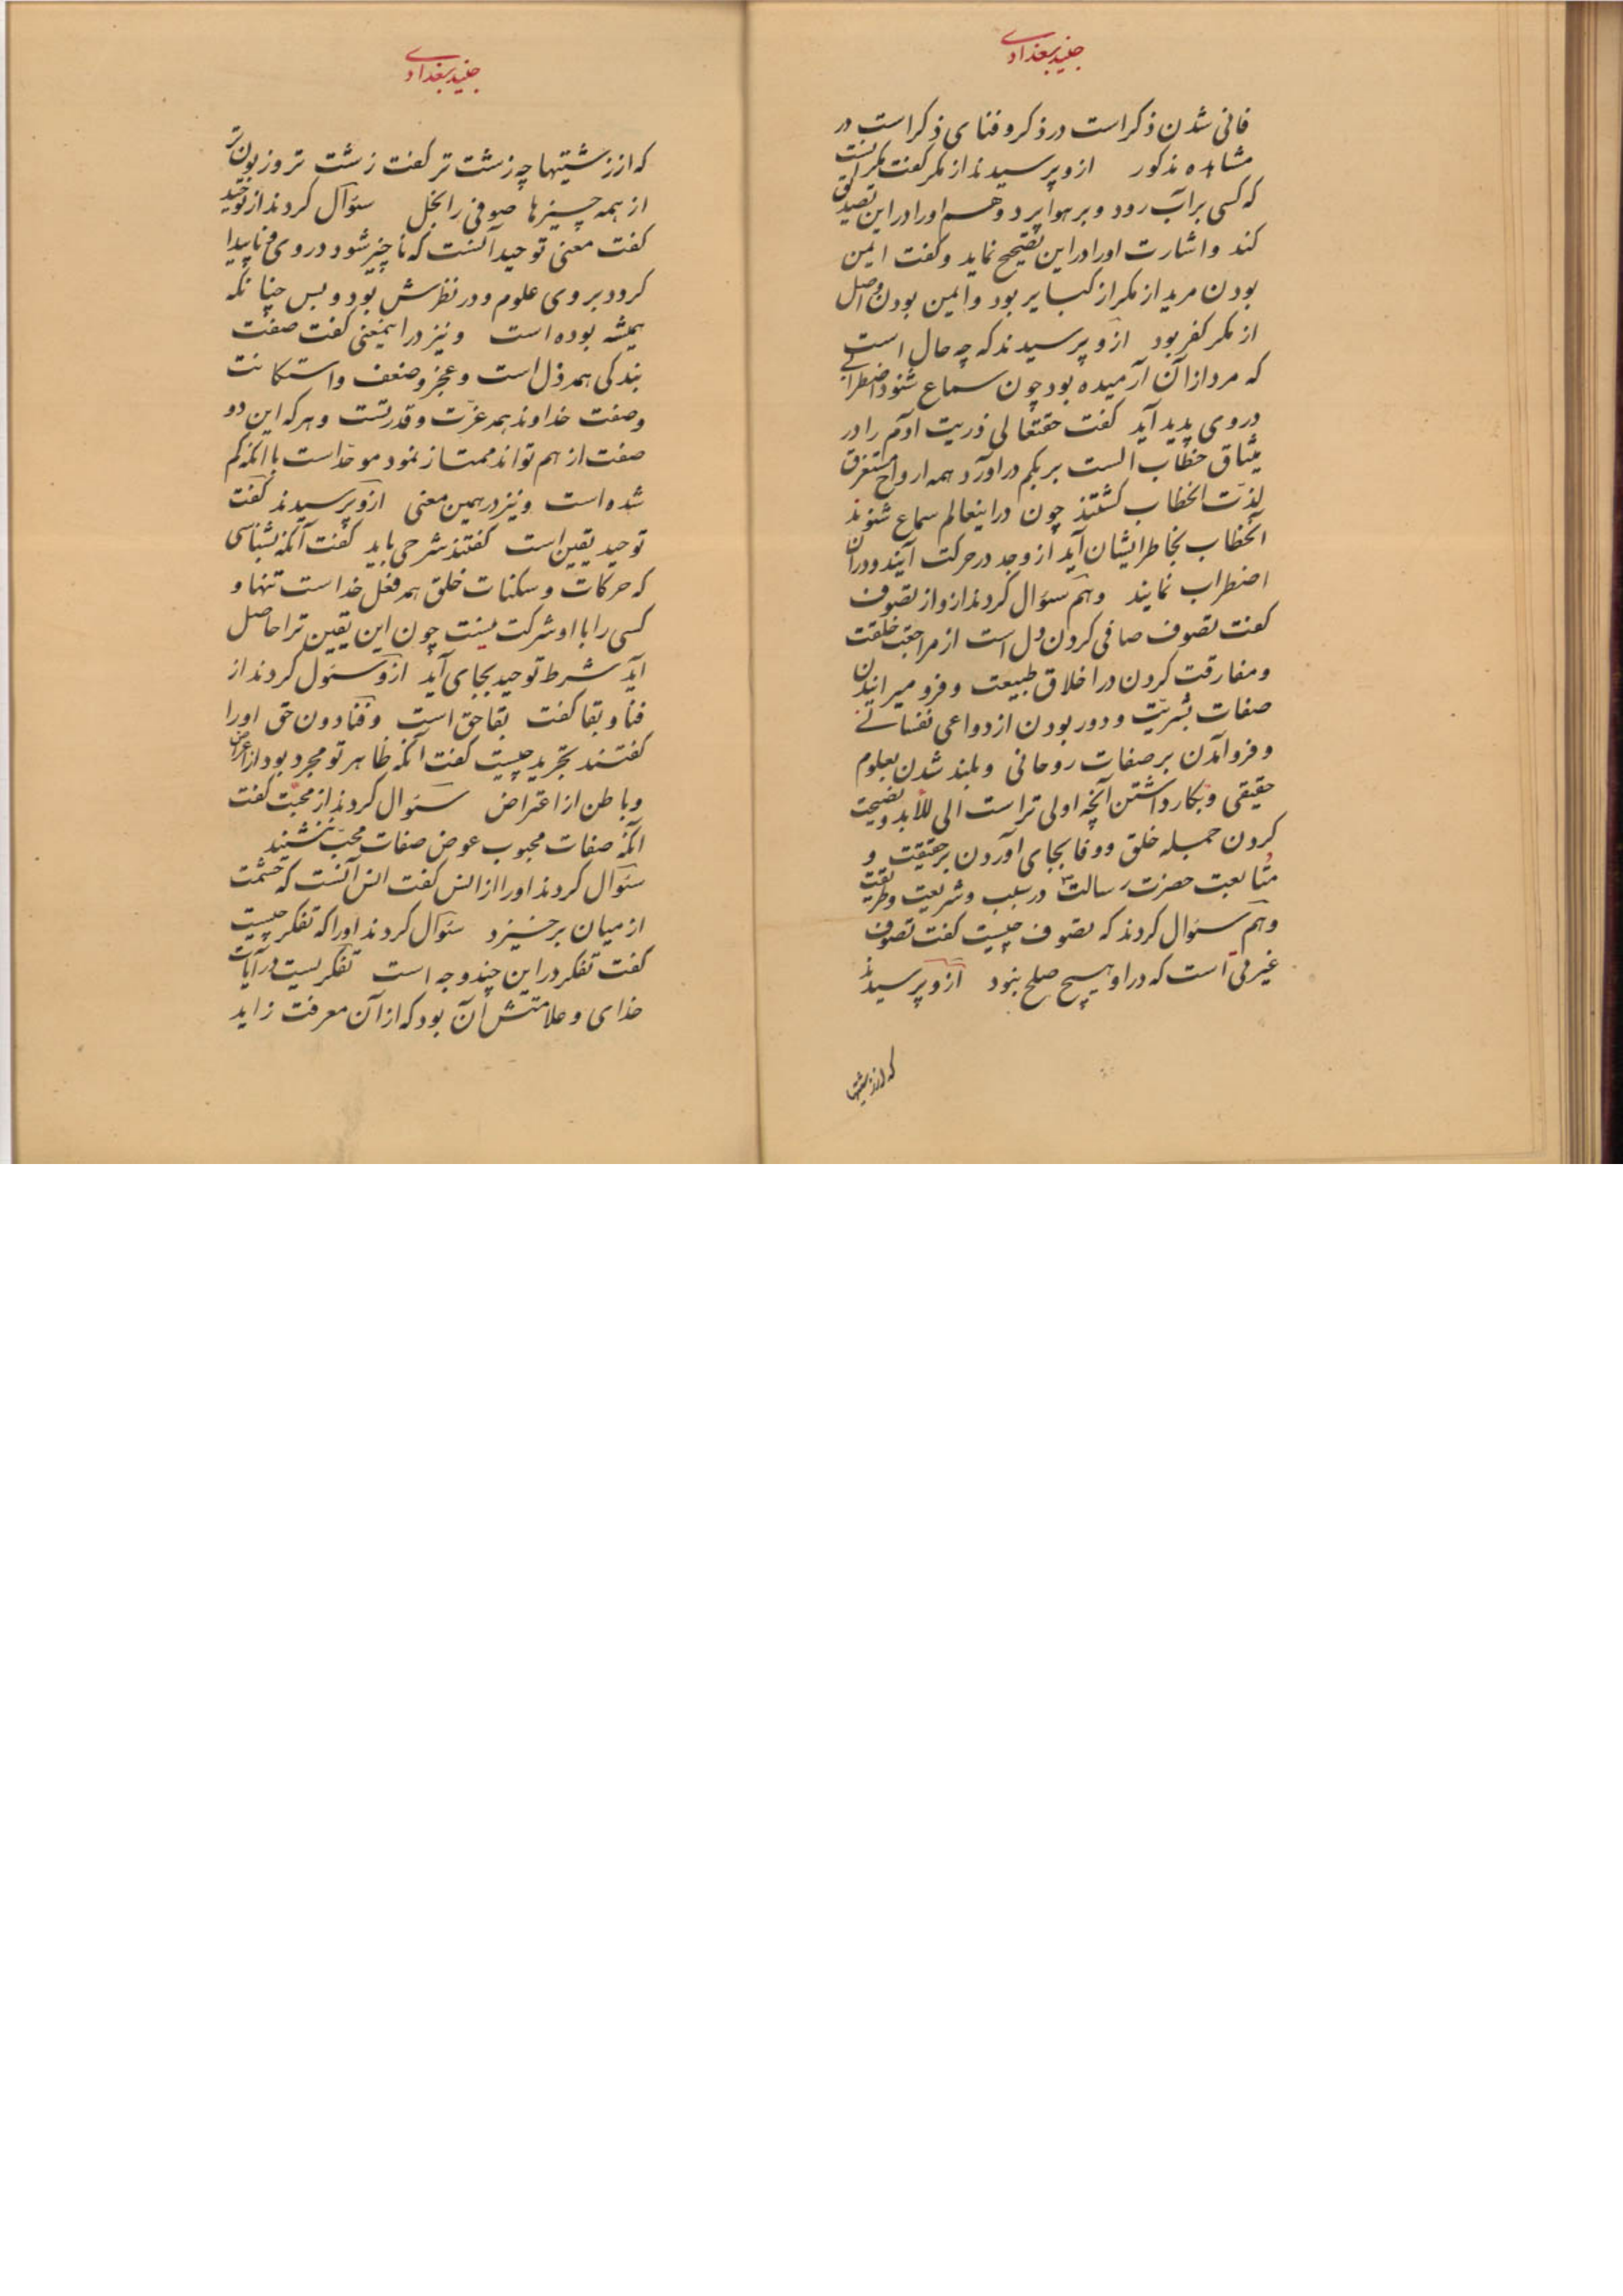 جنید بغدادی
فانی شدن ذکر است در ذکر و فنای ذکر است در
مشاهده مذکور ازو پرسیدند از مکر گفت مکر آنست
که کسی بر آب رود و بر هوا پرد و هم او را در این تصدیق
کند و اشارت او را در این تصحیح نماید و گفت ایمن
بودن مرید از مکر از کبایر بود و ایمن بودن واصل
از مکر کفر بود ازو پرسیدند که چه حال است
که مرد از آن آرمیده بود چون سماع شنود اضطرابی
در وی پدید آید گفت حقتعالی ذریت آدم را در
میثاق خطاب الست بربکم در آورد همه ارواح مستغرق
لذت انخطاب گشتند چون در اینعالم سماع شنوند
آنخطاب بخاطر ایشان آید از وجد در حرکت آیند و در آن
اضطراب نمایند و هم سؤال کردند ازو از تصوف
گفت تصوف صافی کردن دل است از مراجعت خلقت
و مفارقت کردن در اخلاق طبیعت و فرو میرانیدن
صفات بشریت و دور بودن از دواعی نفسانی
و فرو آمدن بر صفات روحانی و بلند شدن بعلوم
حقیقی و بکار داشتن آنچه اولی تر است الی للأبد و نصیحت
کردن جمیله خلق و وفا بجای آوردن بر حقیقت و
متابعت حضرت رسالت در سبب و شریعت و طریقت
و هم سؤال کردند که تصوف چیست گفت تصوف
است که در او هیچ صلح نبود ازو پرسیدند
که از زشتیها
جنید بغدادی
که از زشتیها چه زشت تر گفت زشت تر و زبون تر
از همه چیزها صوفی را بخل سؤال کردند از توحید
گفت معنی توحید آنست که ناچیز شود در وی و ناپیدا
گردد بروی علوم و در نظرش بود و بس چنانکه
همیشه بوده است و نیز در اینمعنی گفت صفت
بندگی همه ذل است و عجز و ضعف و استکانت
و صفت خداوند همه عزت و قدرتست و هر که این دو
صفت از هم تواند ممتاز نمود موحد است با آنکه گم
شده است و نیز در همین معنی ازو پرسیدند گفت
توحید یقین است گفتند شرحی باید گفت آنکه بشناسی
که حرکات و سکنات خلق همه فعل خداست تنها و
کسی را با او شرکت نیست چون این یقین ترا حاصل
آید شرط توحید بجای آید ازو سئول کردند از
فنا و بقا گفت بقا حق است و فنا دون حق او را
گفتند تجرید چیست گفت آنکه ظاهر تو مجرد بود از اعراض
و باطن از اعتراض سؤال کردند از محبت گفت
آنکه صفات محبوب عوض صفات محب بنشیند
سؤال کردند او را از انس گفت انس آنست که حشمت
از میان برخیزد سؤال کردند او را که تفکر چیست
گفت تفکر در این چند وجه است تفکریست در آیات
خدای و علامتش آن بود که از آن معرفت زاید